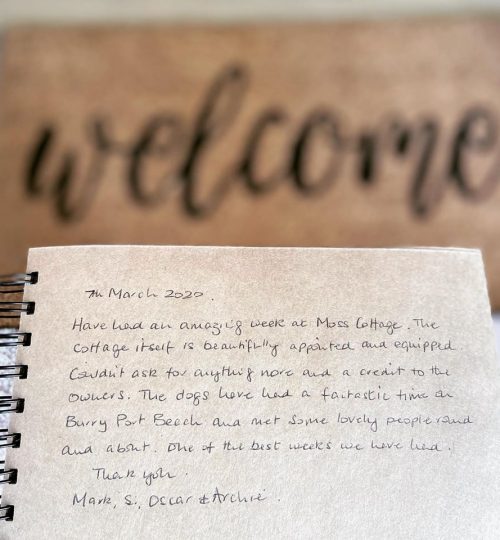 welcome
7th March 2020.
Have had an amazing week at Moss Cottage. The
cottage itself is beautifully appointed and equipped
Couldn't ask for anything more and a credit to the
owners. The dogs have had a fantastic time on
Burry Port Beach and met some lovely people
and about. One of the best weeks we have had!
Thank you.
Mark, S, Oscar & Archie.